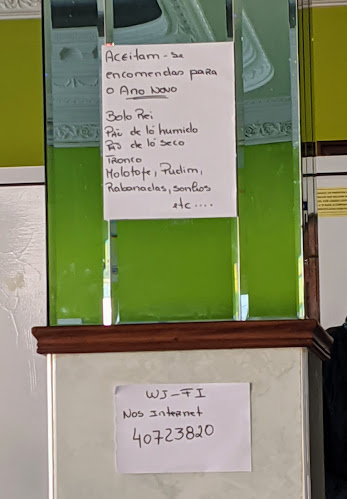 Aceitam-se
encomendas para
o Ano Novo
Bolo Rei
Pão de ló humido
Pão de ló seco
Tronco
Molotofe, Pudim,
Rabanadas, sonhos
etc....
WI-FI
Nos Internet
40723820